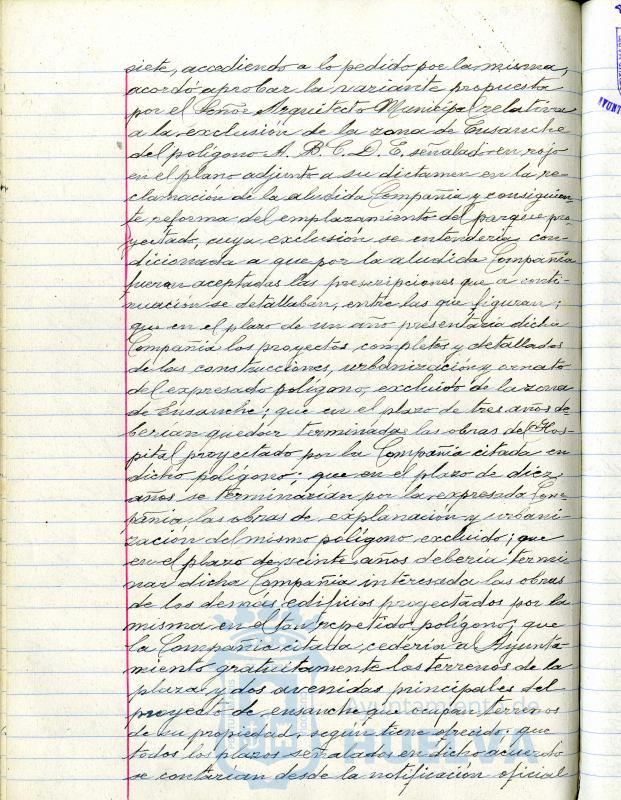 siete, accediendo a lo pedido por la misma,
acordó aprobar la variante propuesta
por el Señor Arquitecto Municipal relativa
a la exclusión de la zona de Ensanche
del polígono A. B. C. D. E. señalado en rojo
en el plano adjunto a su dictamen en la re-
clamación de la aludida Compañia y consiguien-
te reforma del emplazamiento del parque pro-
yectado, cuya exclusión se entendería con-
dicionada a que por la aludida Compañia
fueran aceptadas las prescripciones que a conti-
nuación se detallaban, entre las que figuran;
que en el plazo de un año presentaria dicha
Compañia los proyectos completos y detallados
de las construcciones, urbanización y ornato
del expresado polígono, excluido de la zona
de Ensanche; que en el plazo de tres años de-
berían quedar terminadas las obras del Hos-
pital proyectado por la Compañia citada en
dicho polígono; que en el plazo de diez
años se terminarían por la expresada Com-
pañia las obras de explanación y urbani-
zación del mismo polígono excluido; que
en el plazo de veinte años debería termi-
nar dicha Compañia interesada las obras
de los demás edificios proyectados por la
misma en el tan repetido polígono; que
la Compañia citada, cedería al Ayunta-
miento gratuitamente los terrenos de la
plaza y dos avenidas principales del
proyecto de ensanche que ocupan terrenos
de su propiedad, según tiene ofrecido; que
todos los plazos señalados en dicho acuerdo
se contarían desde la notificación oficial
Ayuntamiento de
HUELVA